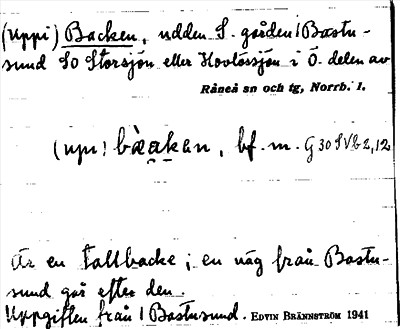 (Uppi) Backen, udden S. gården i Bastu-
sund SO Storsjön eller Hovlössjön i Ö. delen av
Råneå sn och tg, Norrb. l.
(upi) bàakan, bf. m. G 30 SVb 2,12
Är en tallbacke; en väg från Bastu-
sund går efter den.
Uppgiften från 1 Bastusund. EDVIN BRÄNNSTRÖM 1941